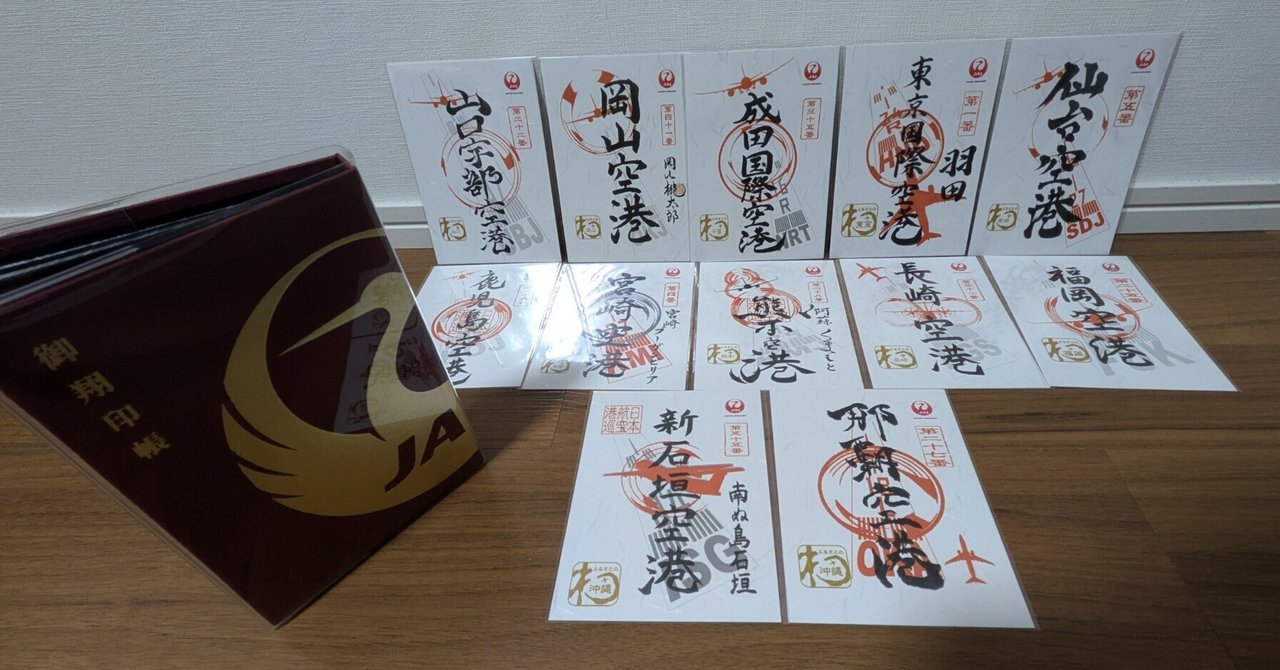 御翔印帳
JA
第二十二番
山口宇部空港
BJ
第四十一番
岡山空港
岡山桃太郎
第三十五番
成田国際空港
RT
第一番
東京国際空港
羽田
ふるさとの
東京
第五番
仙台空港
SDJ
鹿児島空港
第四番
宮崎空港
宮崎
MI
熊本空港
阿蘇くまもと
長崎空港
福岡空港
日本
航空
港巡
第五十五番
新石垣空港
南ぬ島石垣
ふるさとの
沖縄
第二十七番
那覇空港
ふるさとの
沖縄